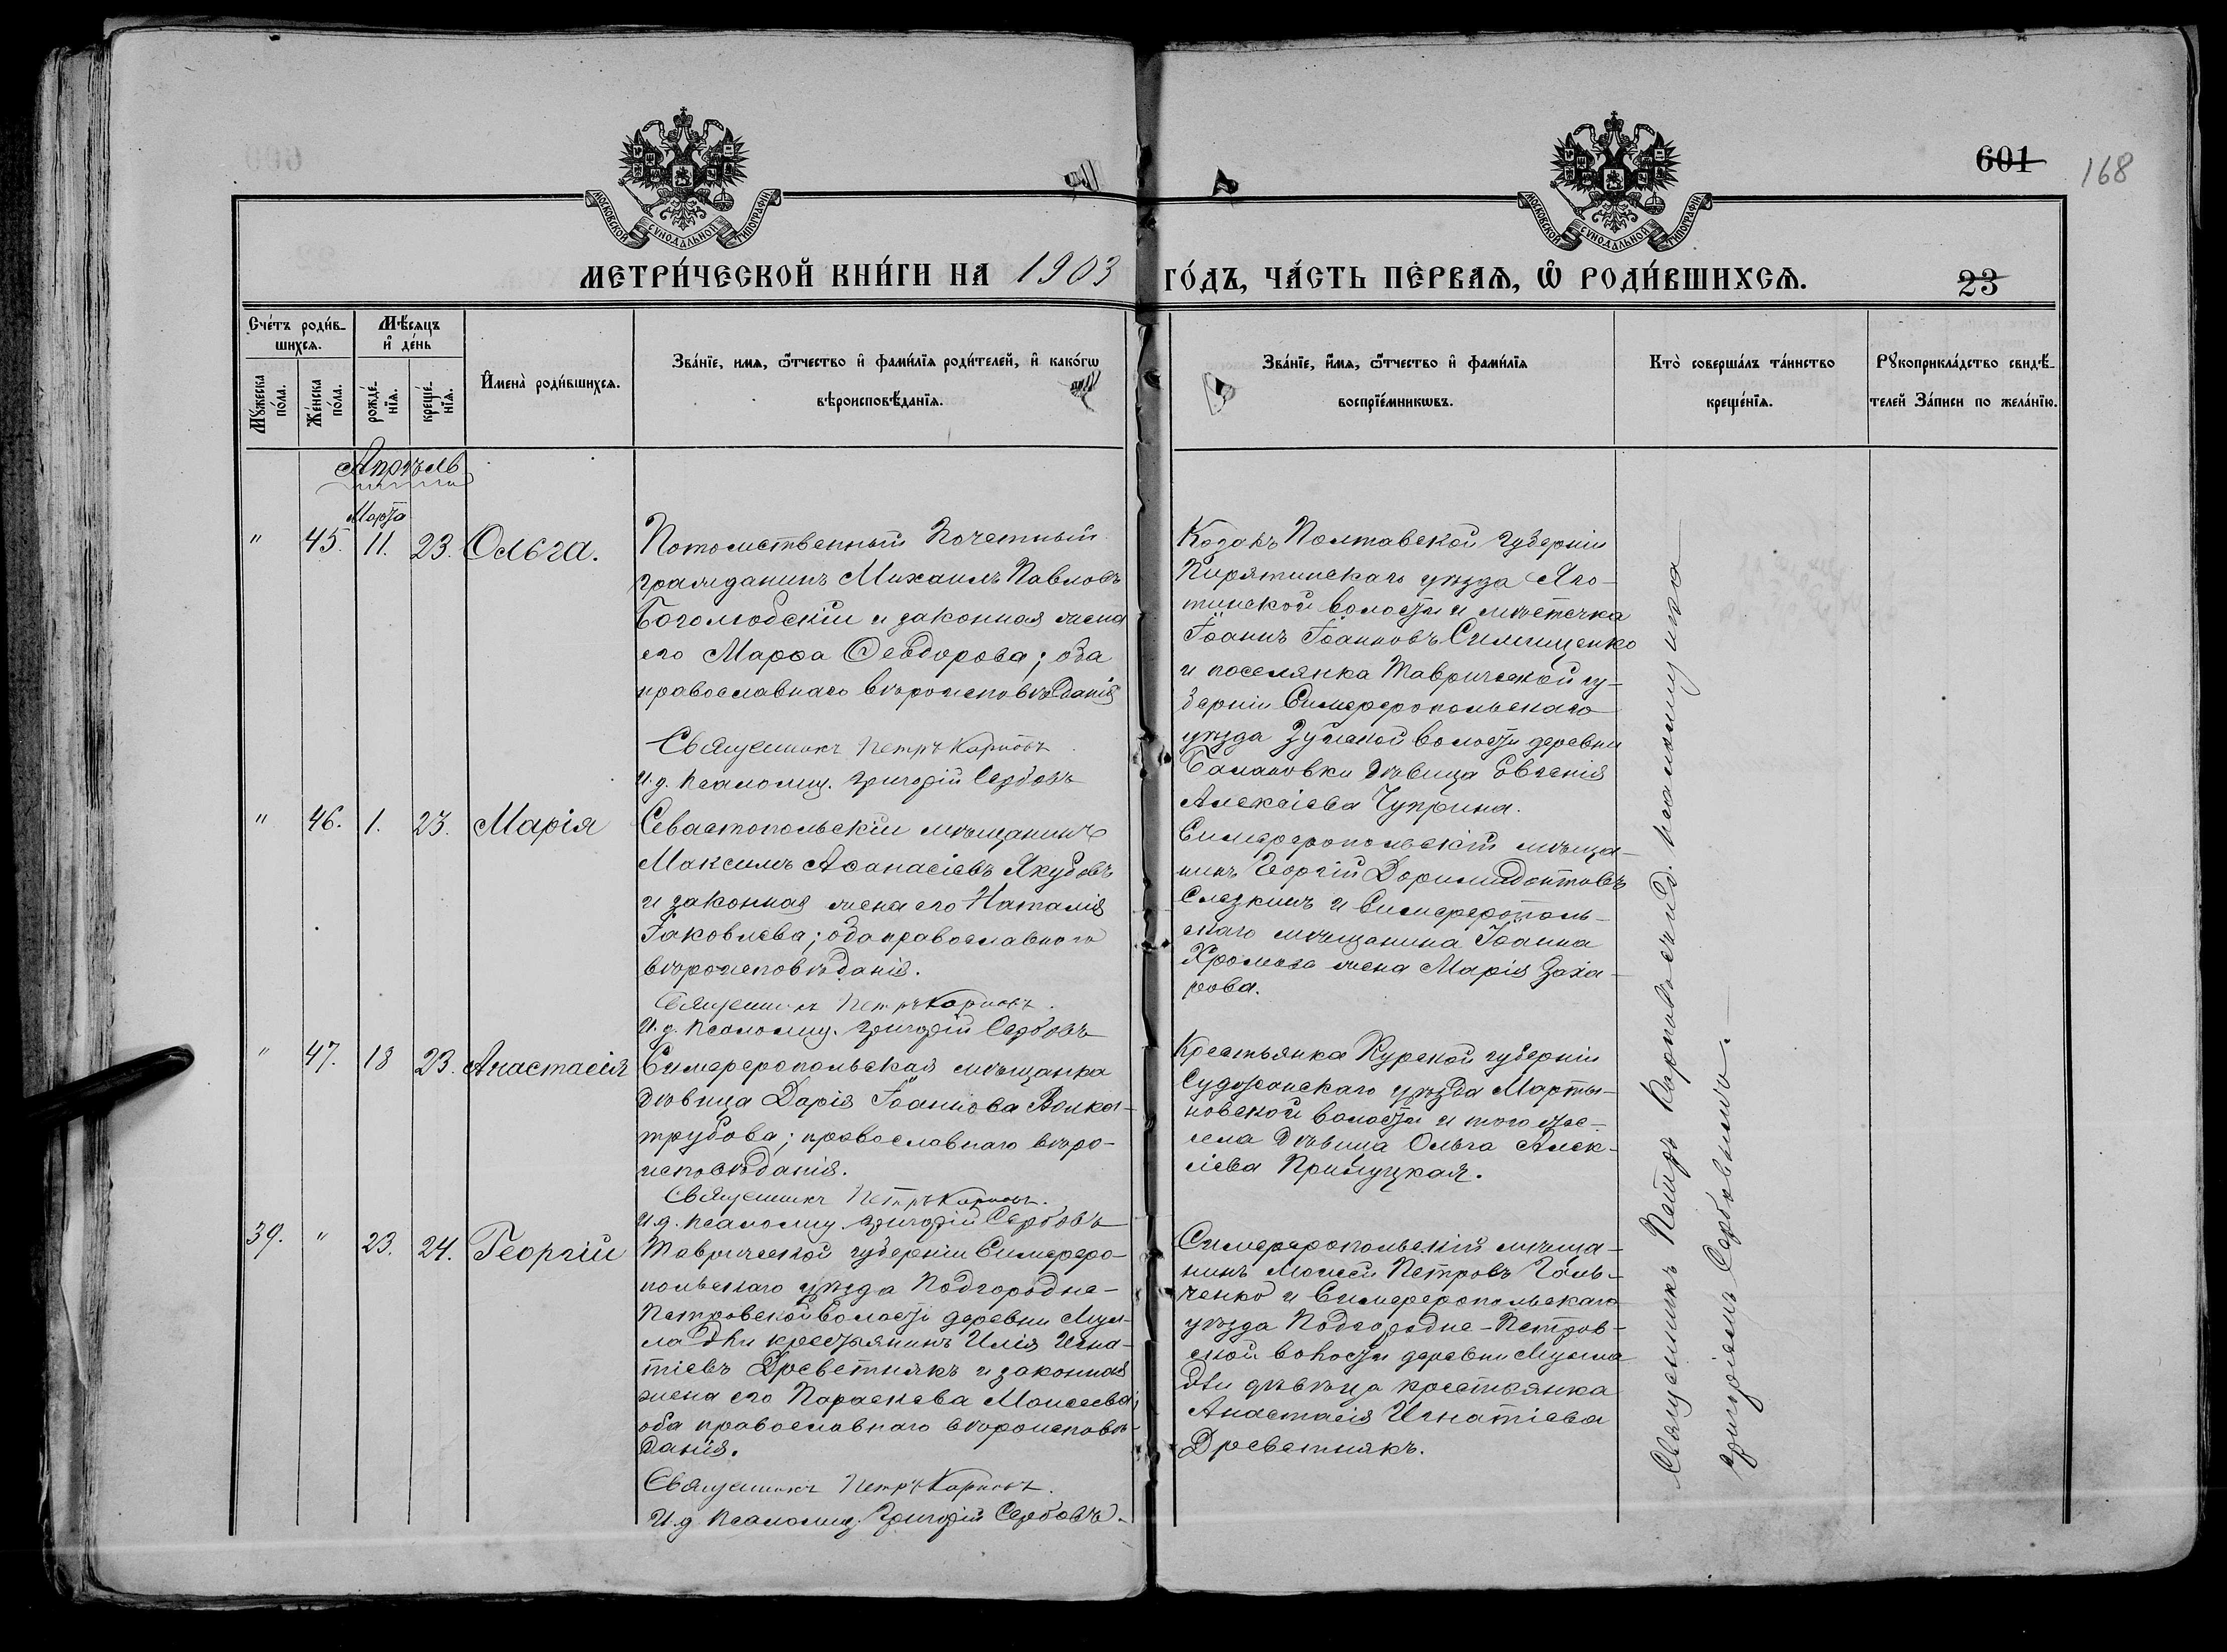 601
168
МОСКОВСКОЙ СѴНОДАЛЬНОЙ ТИПОГРАФІИ
МОСКОВСКОЙ СѴНОДАЛЬНОЙ ТИПОГРАФІИ
МЕТРИ́ЧЕСКОЙ КНИ́ГИ НА 1903 ГО́ДЪ, ЧА́СТЬ ПЕ́РВАѦ, Ѡ҆ РОДИ́ВШИХСѦ.
23
Сче́тъ роди́в-
шихсѧ.
Мꙋ́жеска по́ла.
Же́нска по́ла.
Мѣ́сѧцъ
и҆ де́нь
рожде́-
нїѧ.
креще́-
нїѧ.
И҆мена̀ роди́вшихсѧ.
Зва́нїе, имѧ, ѻ҆́тчество и҆ фами́лїѧ роди́телей, и҆ како́гѡ
вѣроисповѣ́данїѧ.
Зва́нїе, и҆́мѧ, ѻ҆́тчество и҆ фами́лїѧ
воспрїе́мникѡвъ.
Кто̀ соверша́лъ та́инство
креще́нїѧ.
Рꙋкоприкла́дство свидѣ́-
телей За́писи по жела́нїю.
Апрѣль
Марта
" 45. 11. 23. Ольга.
Потомственный Почетный
гражданинъ Михаилъ Павловъ
Боголюбскій и законная жена
его Марѳа Ѳеодорова; оба
православнаго вѣроисповѣданія
Священникъ Петръ Карповъ
И. д. псаломщ. Григорій Сербовъ
Козакъ Полтавской губерніи
Пирятинскаго уѣзда Яго-
тинской волости и мѣстечка
Іоаннъ Іоанновъ Симищенко
и поселянка Таврической гу-
берніи Симферопольскаго
уѣзда Зуйской волости деревни
Балановки дѣвица Евгенія
Алексіева Чуприна.
" 46. 1. 23. Марія
Севастопольскій мѣщанинъ
Максимъ Аѳанасіевъ Якубовъ
и законная жена его Наталія
Іаковлева; оба православнаго
вѣроисповѣданія.
Священникъ Петръ Карповъ.
И. д. псаломщ. Григорій Сербовъ
Симферопольскій мѣща-
нинъ Георгій Доримидонтовъ
Слезкинъ и Симферополь-
скаго мѣщанина Іоанна
Хромова жена Марія Заха-
рова.
" 47. 18 23. Анастасія
Симферопольская мѣщанка
дѣвица Дарія Іоаннова Волко-
трубова; православнаго вѣро-
исповѣданія.
Священникъ Петръ Карповъ.
И. д. псаломщ. Григорій Сербовъ
Крестьянка Курской губерніи
Суджанскаго уѣзда Марты-
новской волости и того же
села дѣвица Ольга Алек-
сіева Прилуцкая.
39. " 23. 24. Георгій
Таврической губерніи Симферо-
польскаго уѣзда Подгородне-
Петровской волости деревни
крестьянинъ Илія Игна-
тіевъ Древетнякъ и законная
жена его Параскева Моисеева;
оба православнаго вѣроисповѣ-
данія.
Священникъ Петръ Карповъ.
И. д. псаломщ. Григорій Сербовъ.
Симферопольскій мѣща-
нинъ Моисей Петровъ Галь-
ченко и Симферопольскаго
уѣзда Подгородне-Петров-
ской волости деревни
дѣвица крестьянка
Анастасія Игнатіева
Древетнякъ.
Священникъ Петръ Карповъ съ и. д. псаломщика
Григоріемъ Сербовымъ.